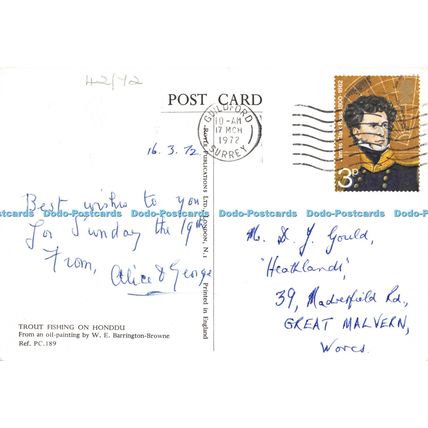 42/Y2
POST CARD
GUILDFORD
10-AM
17 MCH
1972
SURREY
3P
16.3.72
Best wishes to you
for Sunday the 19th
From,
Alice & George
PUBLICATIONS LTD., LONDON, N.1 Printed in England
M. D. J. Gould,
'Heathlands',
39, Madresfield Rd.,
GREAT MALVERN,
Worcs.
Dodo-Postcards Dodo-Postcards Dodo-Postcards Dodo-Postcards
TROUT FISHING ON HONDDU
From an oil-painting by W. E. Barrington-Browne
Ref. PC.189